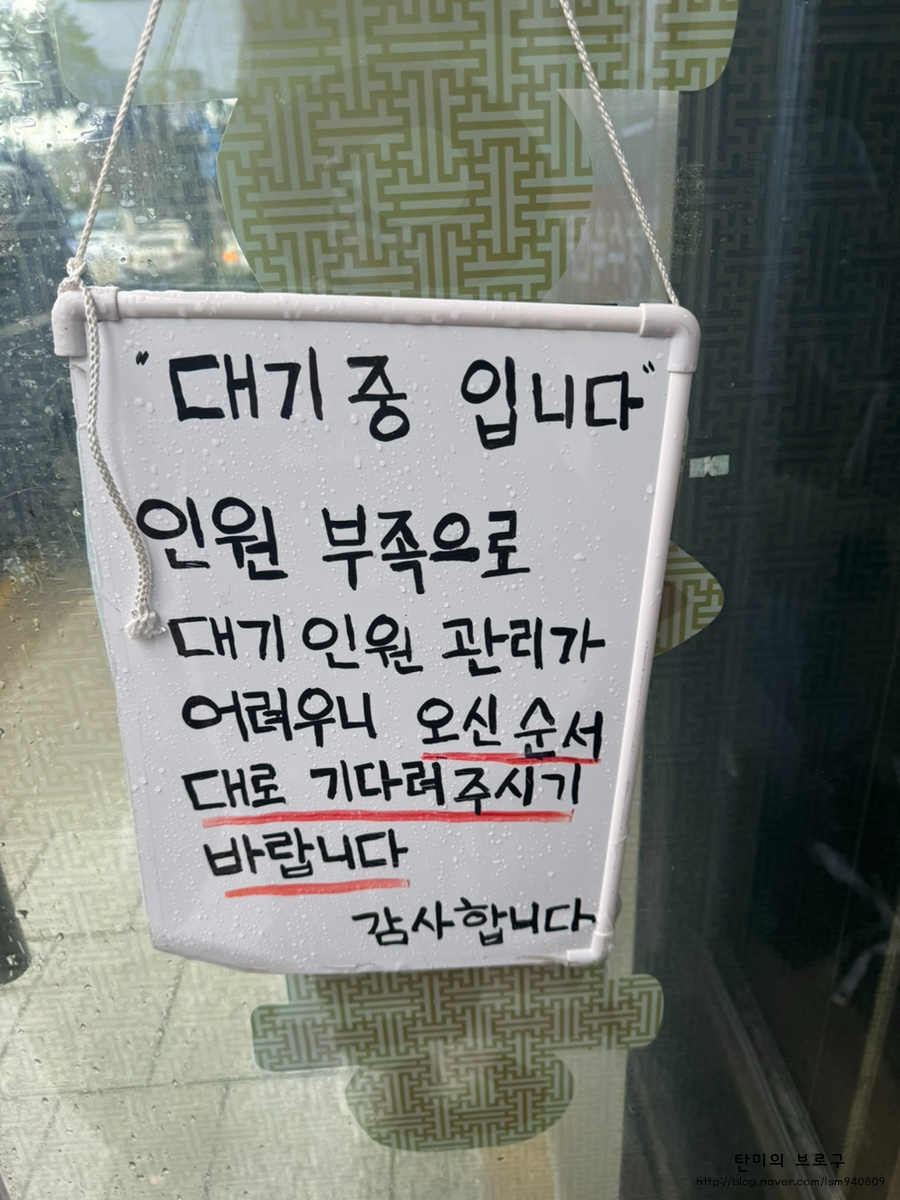 "대기중 입니다"
인원 부족으로
대기 인원 관리가
어려우니 오신 순서
대로 기다려주시기
바랍니다
감사합니다
탄미의 브로구
http://blog.naver.com/lsm940809